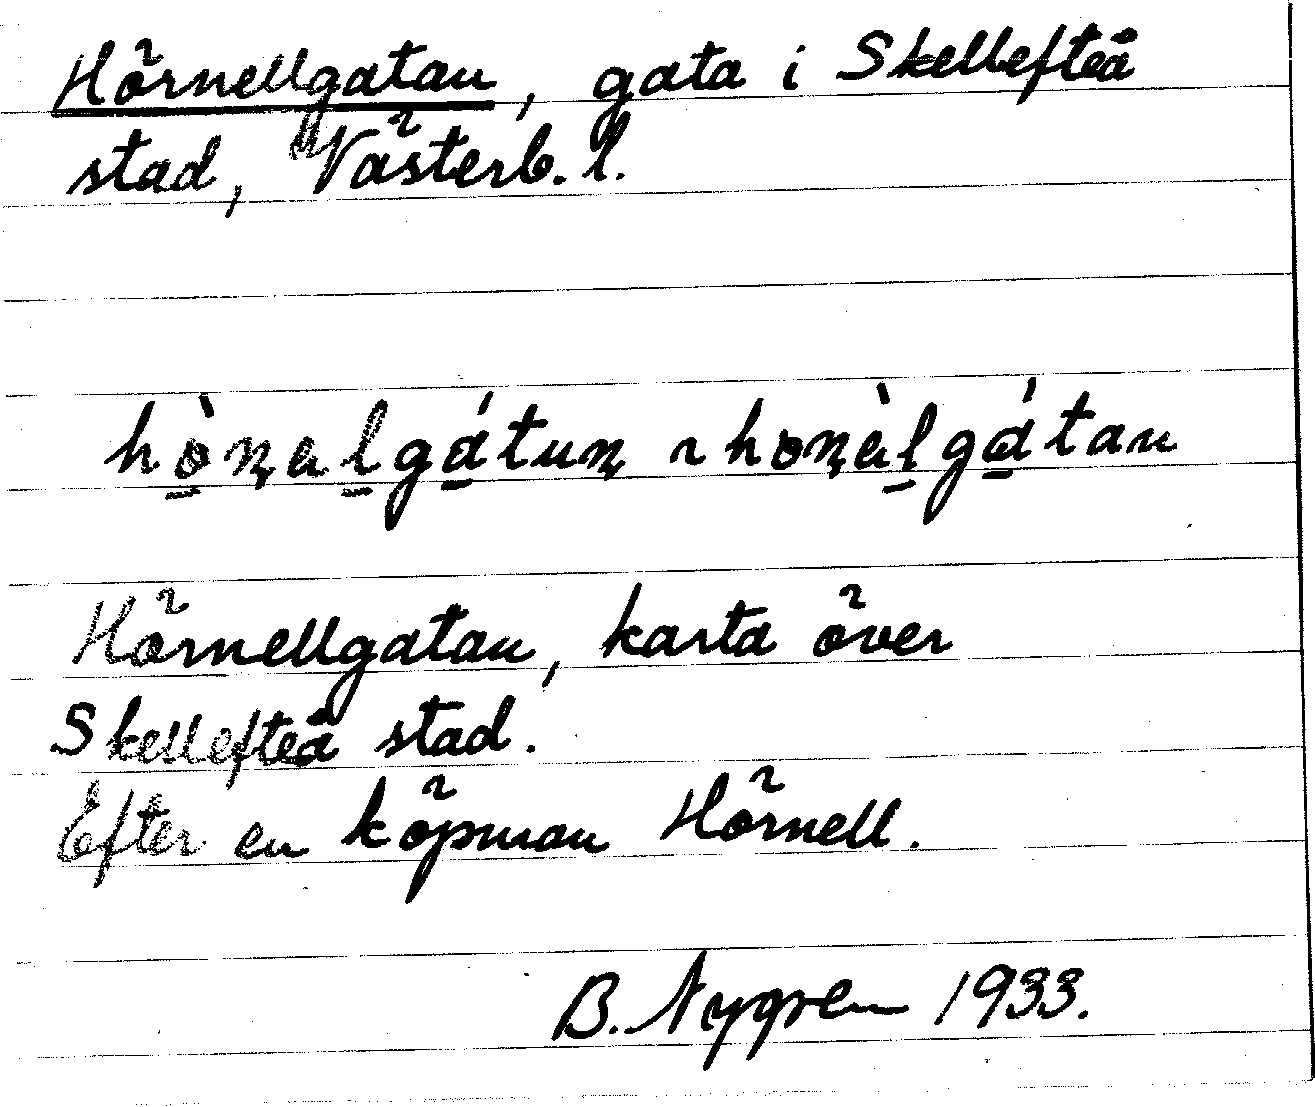 Hörnellgatan, gata i Skellefteå
stad, Västerb. l.
hò̱ɳalgá̱tuɳ ~ hoɳàl̠gá̱tan
Hörnellgatan, karta över
Skellefteå stad.
Efter en köpman Hörnell.
B. Nygren 1933.